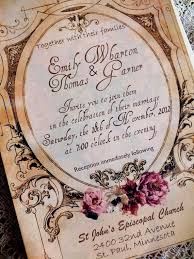 Together with their families
Emily Wharton
&
Thomas Garner
Invite you to join them
in the celebration of their marriage
Saturday, the 18th of November, 2012
at 7:00 o'clock in the evening
Reception immediately following
St John's Episcopal Church
2400 32nd Avenue
St. Paul, Minnesota